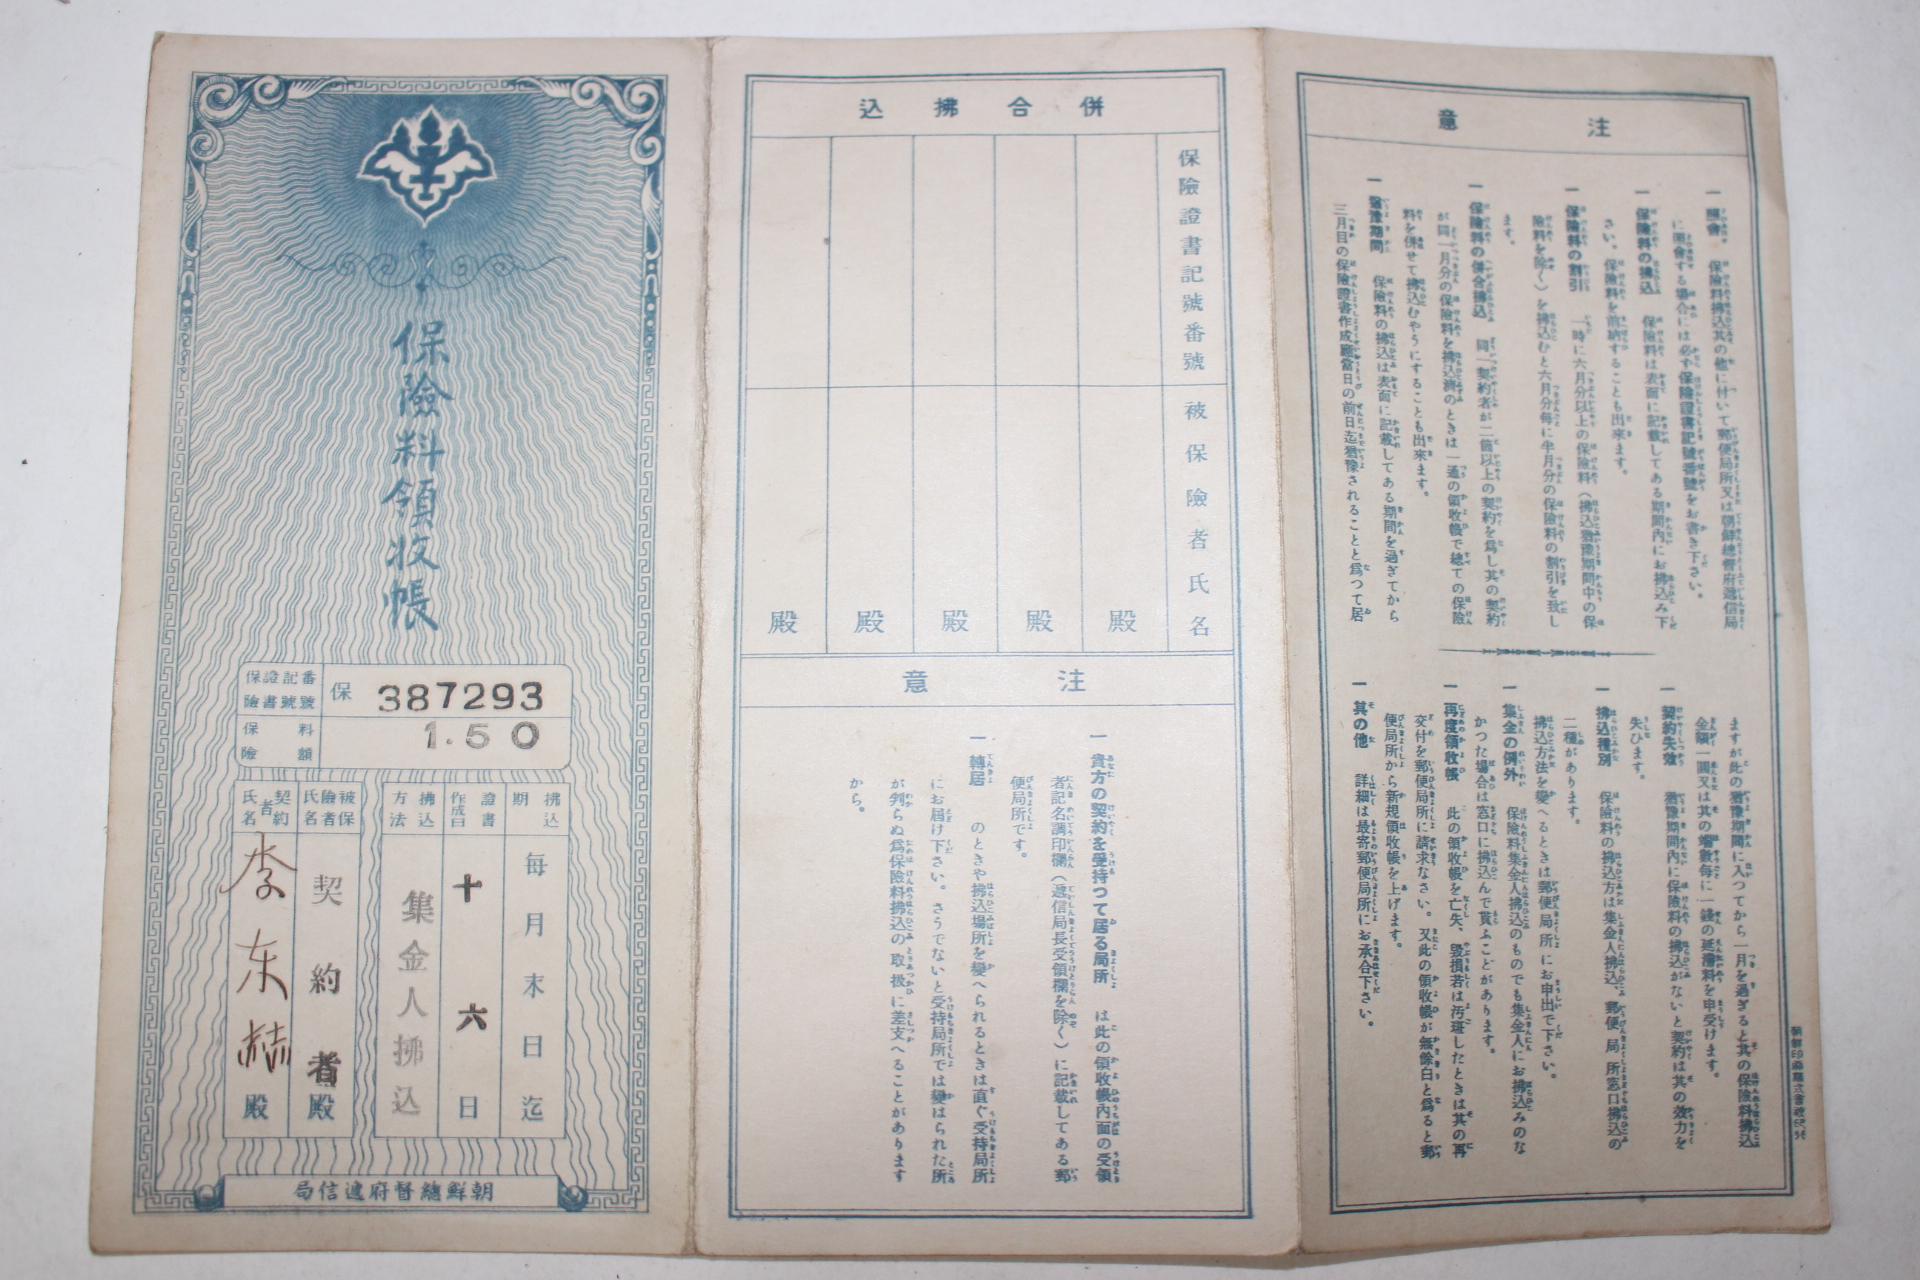 保險料領收帳
保險證書記號番號
保 387293
保險料額
1.50
拂込期
每月末日迄
證書作成日
十六日
拂込方法
集金人拂込
被保險者氏名
契約者殿
契約者氏名
李东赫殿
朝鮮總督府遞信局
併合拂込
保險證書記號番號
被保險者氏名
殿
殿
殿
殿
殿
注意
一 貴方の契約を受持つて居る局所 は此の領收帳內面の受領
者記名調印欄(遞信局長受領欄を除く)に記載してある郵
便局所です。
一 轉居 のときや拂込場所を變へられるときは直ぐ受持局所
にお屆け下さい。さうでないと受持局所では變はられた所
が判らぬ爲保險料拂込の取扱に差支へることがあります
から。
注意
一 照會 保險料拂込其の他に付いて郵便局所又は朝鮮總督府遞信局
に照會する場合には必ず保險證書記號番號をお書き下さい。
一 保險料の拂込 保險料は表面に記載してある期間內にお拂込み下
さい。保險料を前納することも出來ます。
一 保險料の割引 一時に六月分以上の保險料(拂込猶豫期間中の保
險料を除く)を拂込むと六月分每に半月分の保險料の割引を致し
ます。
一 保險料の併合拂込 同一契約者が二箇以上の契約を爲し其の契約
が同一月分の保險料を拂込濟のときは一通の領收帳で總ての保險
料を併せて拂込むやうにすることも出來ます。
一 猶豫期間 保險料の拂込は表面に記載してある期間を過ぎてから
三月目の保險證書作成應當日の前日迄猶豫されることと爲つて居
ますが此の猶豫期間に入つてから一月を過ぎると其の保險料拂込
金額一圓又は其の端數每に一錢の延滯料を申受けます。
一 契約失效 猶豫期間內に保險料の拂込がないと契約は其の效力を
失ひます。
一 拂込種別 保險料の拂込方は集金人拂込、郵便局所窓口拂込の
二種があります。
拂込方法を變へるときは郵便局所にお申出で下さい。
一 集金の例外 保險料集金人拂込のものでも集金人にお拂込みのな
かつた場合は窓口に拂込んで貰ふことがあります。
一 再度領收帳 此の領收帳を亡失、毀損若は汚斑したときは其の再
交付を郵便局所に請求なさい。又此の領收帳が無餘白と爲ると郵
便局所から新規領收帳を上げます。
一 其の他 詳細は最寄郵便局所にお承合下さい。